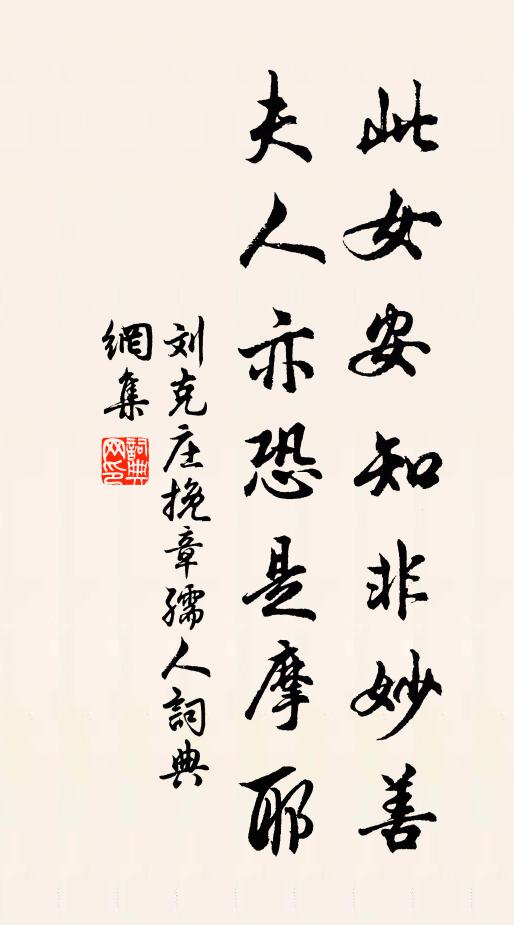 此女安知非妙善
夫人亦恐是摩耶
刘克庄挽章孺人詞典
網集
詞典
网印